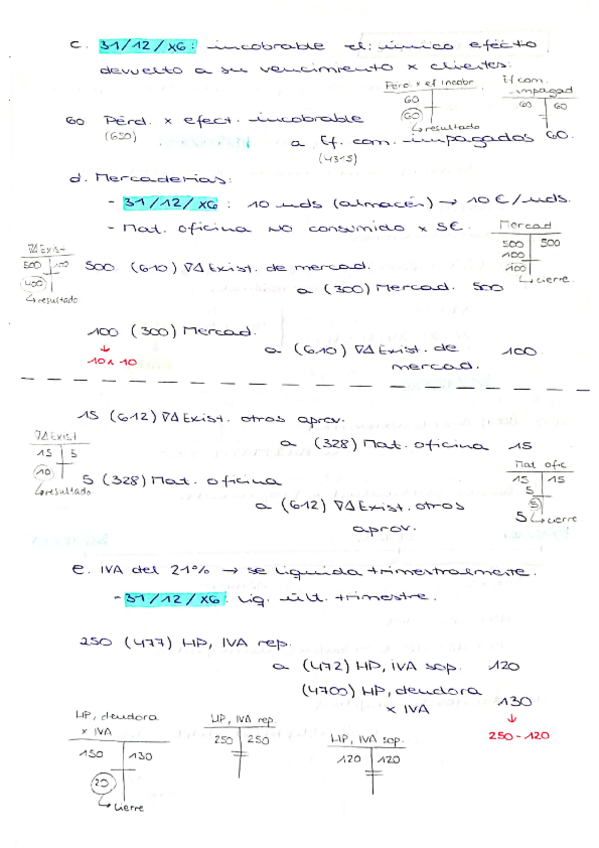 c. 31/12/X6: incobrable el único efecto
devuelto a su vencimiento x clientes:
Pérd. x ef incobr.
60
60
↳ resultado
Ef com. impagad
60 60
60 Pérd. x efect. incobrable
(650)
a Ef. com. impagados 60.
(4315)
d. Mercaderías:
- 31/12/X6: 10 uds (almacén) → 10 €/uds.
- Mat. oficina NO consumido x 5€.
Mercad
500 500
100
100
↳ cierre.
∇Δ Exist
500 100
400
↳ resultado
500 (610) ∇Δ Exist. de mercad.
a (300) Mercad. 500
100 (300) Mercad.
↓
10 x 10
a (610) ∇Δ Exist. de 100
mercad.
15 (612) ∇Δ Exist. otros aprov.
a (328) Mat. oficina 15
∇Δ Exist
15 5
10
↳ resultado
Mat Ofic
15 15
5
5
↳ cierre
5 (328) Mat. oficina
a (612) ∇Δ Exist. otros 5
aprov.
e. IVA del 21% → se liquida trimestralmente.
- 31/12/X6: Liq. últ. trimestre.
250 (477) HP, IVA rep.
a (472) HP, IVA sop. 120
(4700) HP, deudora 130
x IVA
↓
250 - 120
HP, deudora
x IVA
150 130
20
↳ cierre
HP, IVA rep.
250 250
HP, IVA sop.
120 120